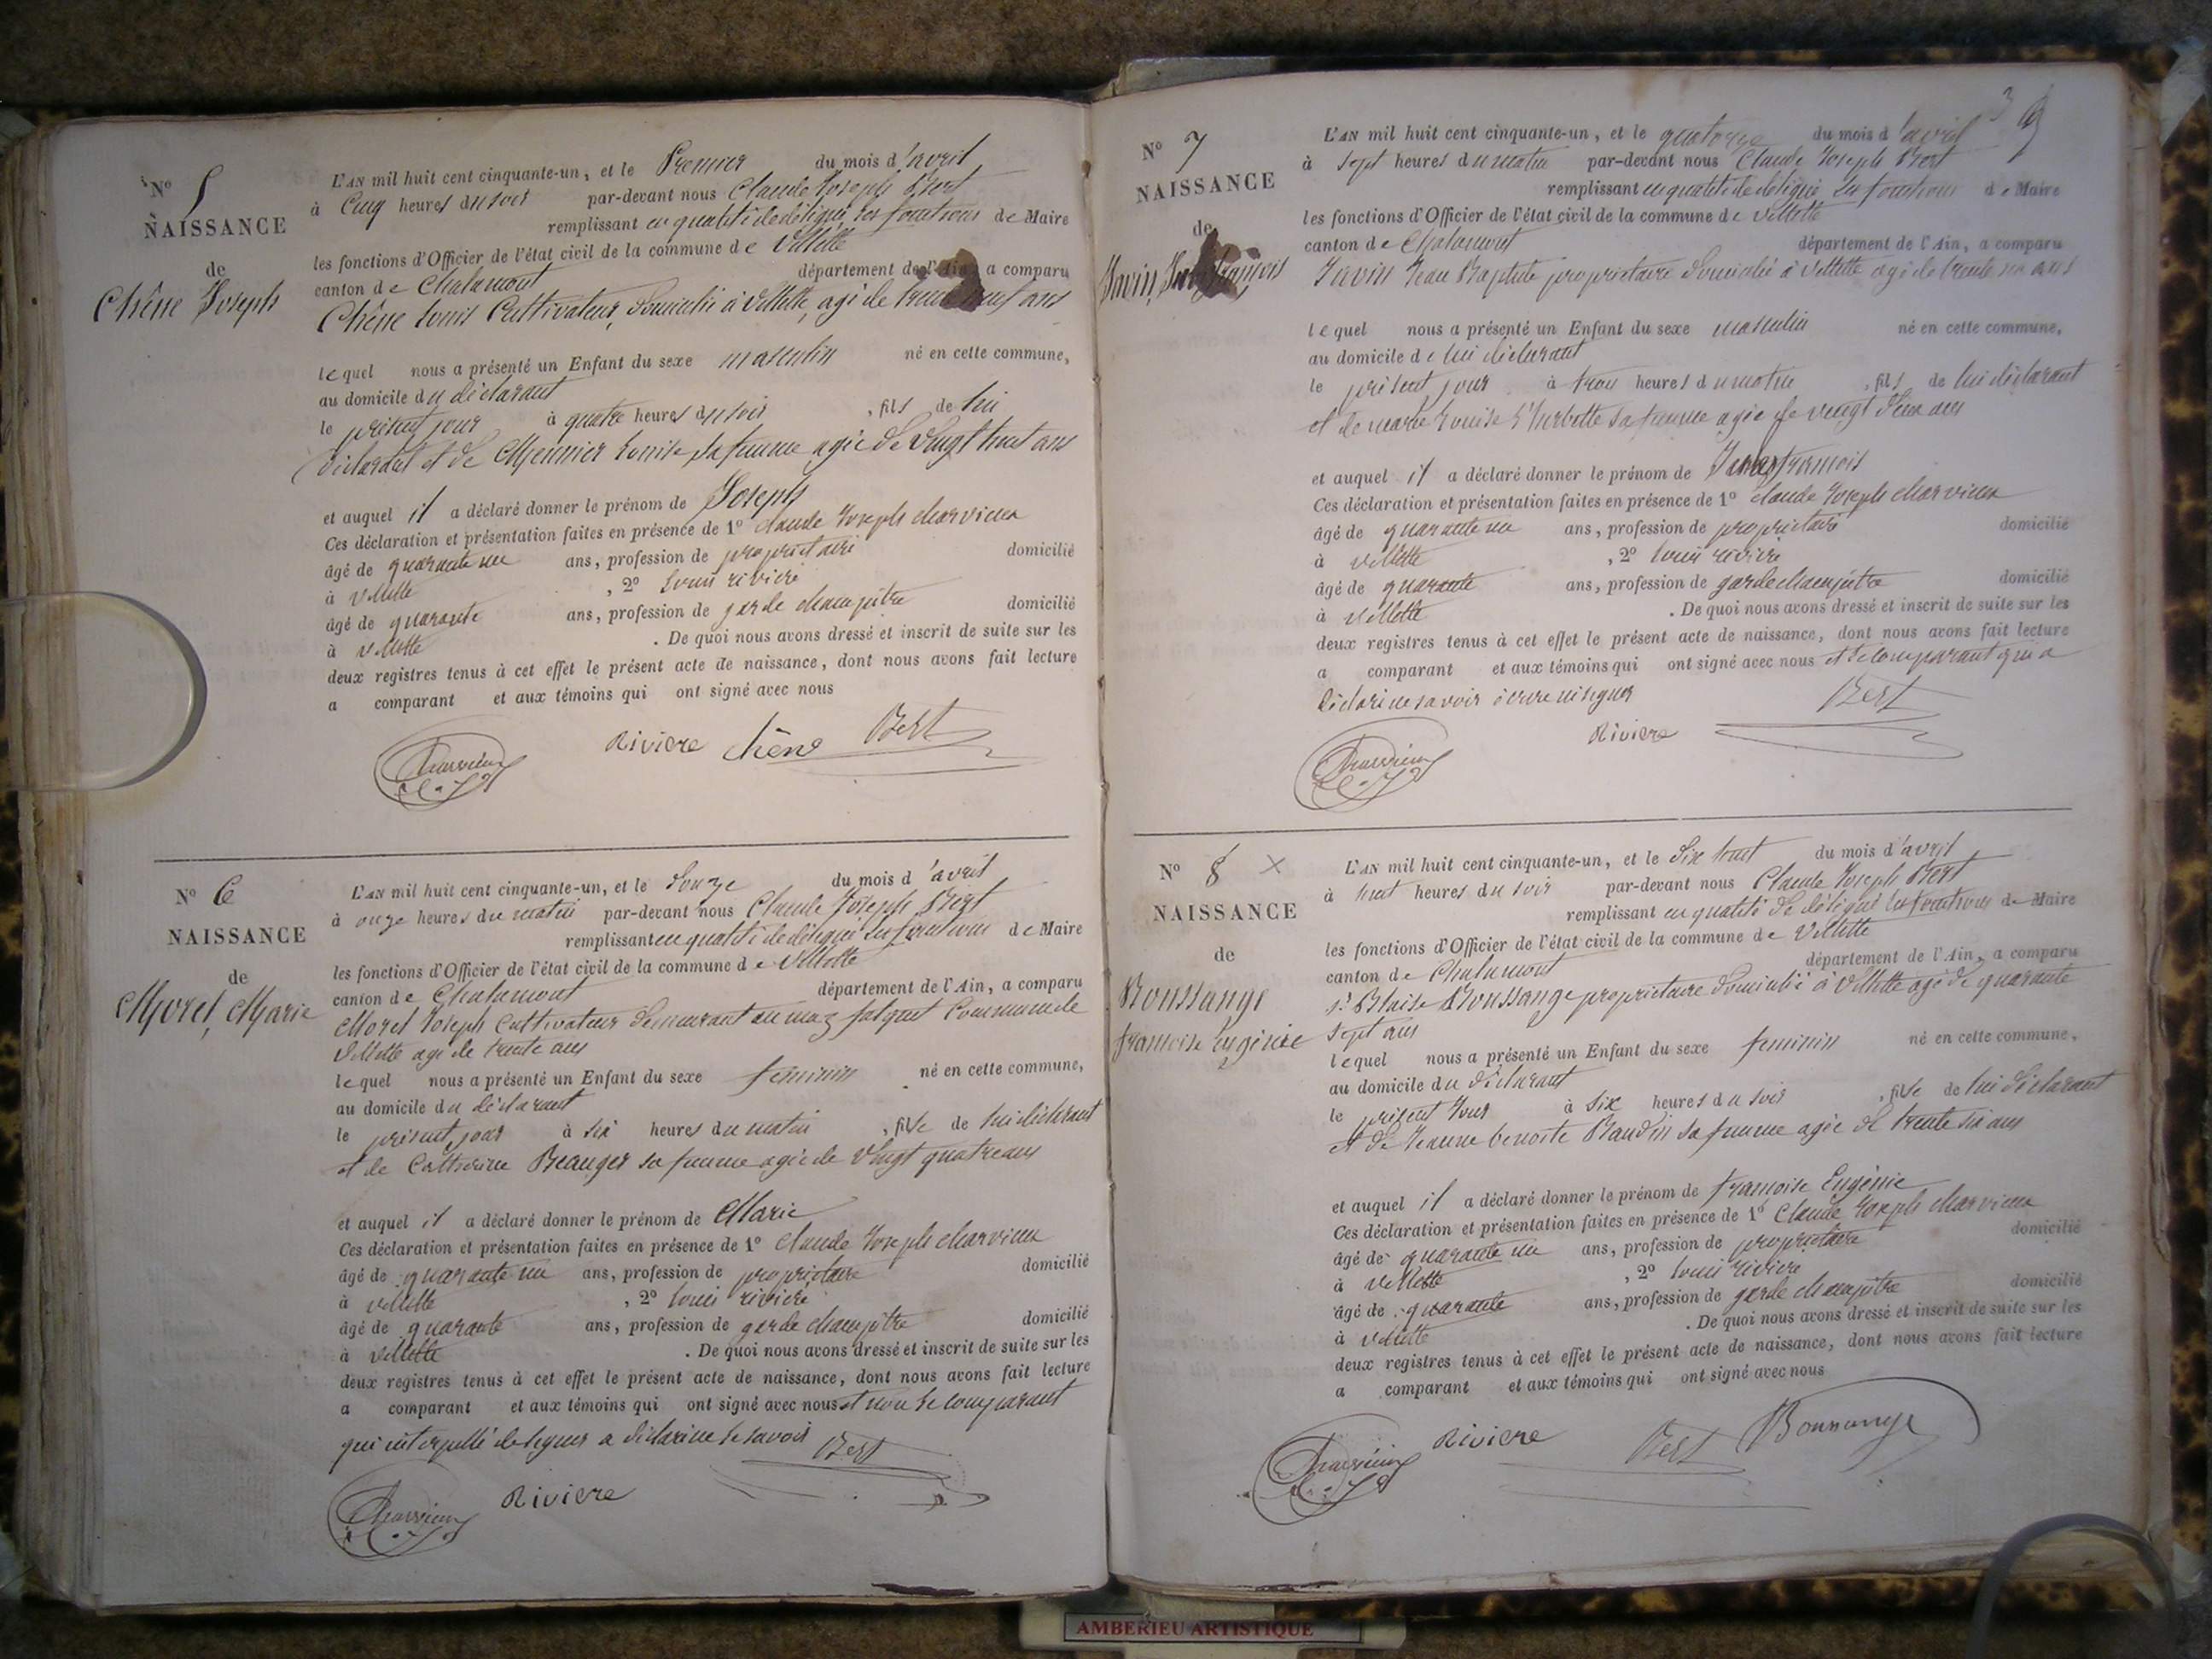 N° 5
NAISSANCE
de
Chêne Joseph
L'AN mil huit cent cinquante-un, et le Premier du mois d'avril
à Cinq heures du soir par-devant nous Claude Joseph Bert
remplissant en qualité de délégué les fonctions de Maire
les fonctions d'Officier de l'état civil de la commune de Villette
canton de Chalamont département de l'Ain, a comparu
Chêne Louis Cultivateur, Domicilié à Villette, agé de trente neuf ans
lequel nous a présenté un Enfant du sexe masculin né en cette commune,
au domicile du déclarant
le présent jour à quatre heures du soir, fils de lui
déclarant et de Meunier Louise sa femme agée de Vingt huit ans
et auquel il a déclaré donner le prénom de Joseph
Ces déclaration et présentation faites en présence de 1° Claude Joseph charvieux
âgé de quarante un ans, profession de propriétaire domicilié
à villette, 2° Louis riviere
âgé de quarante ans, profession de garde champêtre domicilié
à villette. De quoi nous avons dressé et inscrit de suite sur les
deux registres tenus à cet effet le présent acte de naissance, dont nous avons fait lecture
a comparant et aux témoins qui ont signé avec nous
Charvieux C.J. Riviere chêne Bert
N° 6
NAISSANCE
de
Morel, Marie
L'AN mil huit cent cinquante-un, et le Douze du mois d'avril
à onze heures du matin par-devant nous Claude Joseph Bert
remplissant en qualité de délégué les fonctions de Maire
les fonctions d'Officier de l'état civil de la commune de Villette
canton de Chalamont département de l'Ain, a comparu
Morel Joseph Cultivateur demeurant au maz Commune de
Villette agé de trente ans
lequel nous a présenté un Enfant du sexe feminin né en cette commune,
au domicile du déclarant
le présent jour à six heures du matin, fille de lui déclarant
et de Catherine Beauger sa femme agée de Vingt quatre ans
et auquel il a déclaré donner le prénom de Marie
Ces déclaration et présentation faites en présence de 1° Claude Joseph charvieux
âgé de quarante un ans, profession de propriétaire domicilié
à villette, 2° Louis riviere
âgé de quarante ans, profession de garde champêtre domicilié
à villette. De quoi nous avons dressé et inscrit de suite sur les
deux registres tenus à cet effet le présent acte de naissance, dont nous avons fait lecture
a comparant et aux témoins qui ont signé avec nous et non le comparant
qui interpellé de signer a déclaré ne le savoir Bert
Charvieux C.J. Riviere
N° 7
NAISSANCE
de
Javin, françois
L'AN mil huit cent cinquante-un, et le quatorze du mois d'avril
à sept heures du matin par-devant nous Claude Joseph Bert
remplissant en qualité de délégué les fonctions de Maire
les fonctions d'Officier de l'état civil de la commune de Villette
canton de Chalamont département de l'Ain, a comparu
Javin Jean Baptiste propriétaire Domicilié à Villette agé de trente six ans
lequel nous a présenté un Enfant du sexe masculin né en cette commune,
au domicile de lui déclarant
le présent jour à trois heures du matin, fils de lui déclarant
et de marie Louise L'herbette sa femme agée de vingt deux ans
et auquel il a déclaré donner le prénom de françois
Ces déclaration et présentation faites en présence de 1° Claude Joseph charvieux
âgé de quarante un ans, profession de propriétaire domicilié
à villette, 2° Louis riviere
âgé de quarante ans, profession de garde champêtre domicilié
à villette. De quoi nous avons dressé et inscrit de suite sur les
deux registres tenus à cet effet le présent acte de naissance, dont nous avons fait lecture
a comparant et aux témoins qui ont signé avec nous et le comparant qui a
déclaré ne savoir écrire ni signer Bert
Charvieux C.J. Riviere
N° 8 ×
NAISSANCE
de
Boussange
françoise Eugénie
L'AN mil huit cent cinquante-un, et le Dix huit du mois d'avril
à huit heures du soir par-devant nous Claude Joseph Bert
remplissant en qualité de délégué les fonctions de Maire
les fonctions d'Officier de l'état civil de la commune de Villette
canton de Chalamont département de l'Ain, a comparu
Sr Blaise Boussange propriétaire Domicilié à Villette agé de quarante
sept ans
lequel nous a présenté un Enfant du sexe feminin né en cette commune,
au domicile du déclarant
le présent jour à six heures du soir, fille de lui déclarant
et de Jeanne benoite Baudin sa femme agée de trente six ans
et auquel il a déclaré donner le prénom de françoise Eugénie
Ces déclaration et présentation faites en présence de 1° Claude Joseph charvieux
âgé de quarante un ans, profession de propriétaire domicilié
à villette, 2° Louis riviere
âgé de quarante ans, profession de garde champêtre domicilié
à villette. De quoi nous avons dressé et inscrit de suite sur les
deux registres tenus à cet effet le présent acte de naissance, dont nous avons fait lecture
a comparant et aux témoins qui ont signé avec nous
Charvieux C.J. Riviere Bert Boussange
AMBERIEU ARTISTIQUE